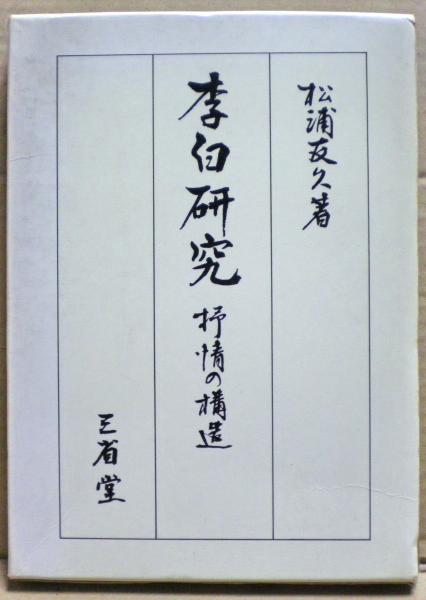 松浦友久著
李白研究
抒情の構造
三省堂